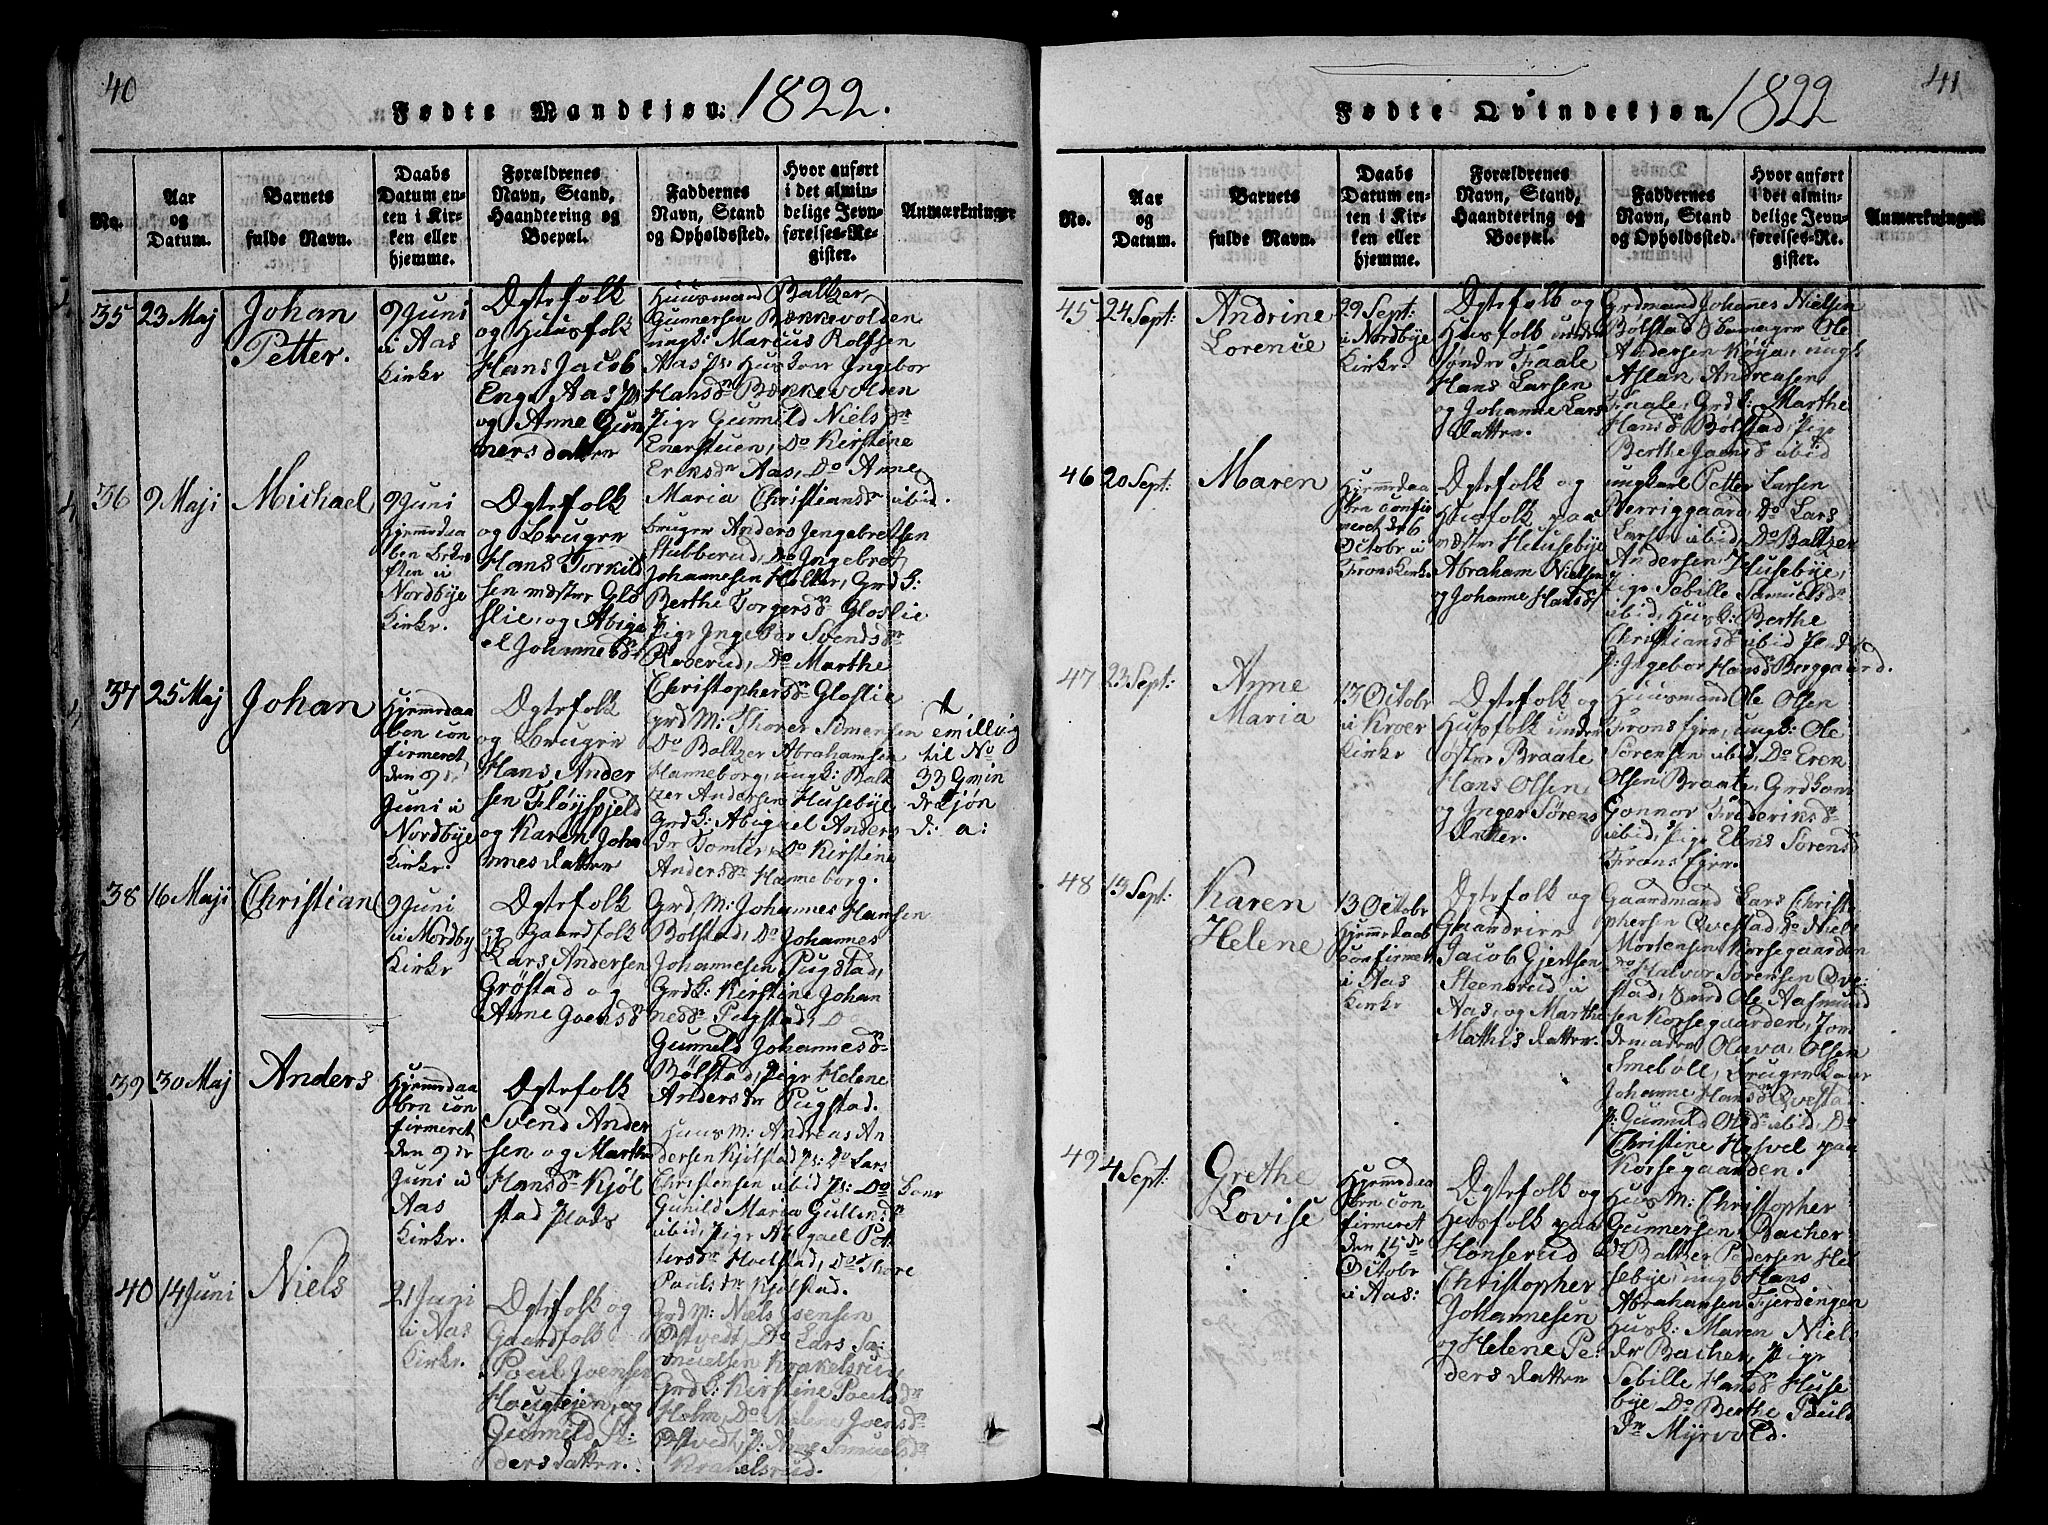 40
Fødte Mandkjøn. 1822.
No.
Aar og Datum.
Barnets fulde Navn.
Daabs Datum enten i Kirken eller hjemme.
Forældrenes Navn, Stand, Haandtering og Boepæl.
Faddernes Navn, Stand og Opholdssted.
Hvor anført i det almindelige Jevnførelses-Register.
Anmærkninger
35
23 Maj
Johan
Petter.
9 Juni
i Aas
Kirke
Ægtefolk
og Huusfolk
Hans Jacob
Eng. Aas Ps
og Anne Gun
ners datter
Huusmand Baltzer
Gunnersen Bekkevolden
ungk: Marcus Rolfsen
Aas ps Huskone Ingebor
Hansdr Bekkevolden
Pige Gunnild Nielsdr
Enerstuen, Do Kirstine
Eriksdr Aas, Do Anne
Maria Christiansdr ibid.
36
9 Maji
Michael
9 Juni
Hjemmedaa
ben
i
Nordbye
Kirke.
Ægtefolk
og Bruger
Hans Torkild
sen næstre Glo
slie, og Abiga
el Johannesdr
Bruger Anders Jengebretsen
Stubberud, Do Ingebret
Johannesen Holter, Grd k:
Berthe Torgersdr Gloslie
Pige Ingebor Svendsdr
Roerud, Do Marthe
Christophersdr Gloslie
37
25 Maj
Johan
Hjemmedaa
ben con
firmeret
den 9de
Juni i
Nordbye
Kirke.
Ægtefolk
og Bruger
Hans Ander
sen Fløyspjeld
og Karen Joha
nnes datter
grd M: Thorer Simensen
Do Baltzer Abrahamsen
Hanneborg, ungk: Balt
zer Andersen Husebye
grd k: Abigael Anders
dr Tomter, Do Kirstine
Andersdr Hanneborg.
til No
33
kjøn
d: a:
38
16 Maji
Christian
9 Juni
i Nordby
Kirke
Ægtefolk
og Gaardfolk
Lars Andersen
Grøstad og
Anne Joensdr
Grd M: Johannes Hansen
Bølstad, Do Johannes
Johannesen Pugstad,
Grd k: Kirstine Johan
nesdr Pugstad, Do
Gunnild Johannesdr
Bølstad, Pige Helene
Andersdr Pugstad.
39
30 Maj
Anders
Hjemmedaa
ben con
firmeret
den 9de
Juni i
Aas
Kirke.
Ægtefolk
Svend Ander
sen og Marthe
Hansdr Kjøl
stad Plads
Huus M: Andreas An
dersen Kjølstad Ps: Do Lars
Christensen ibid Ps: Do Kone
Gunild Maria Gullensdr
ibid, Pige Abigael Pet
tersdr Hoelstad, Do Thore
Paulsdr Kjølstad.
40
14 Juni
Niels
21 Juni
i Aas
Kirke.
Ægtefolk og
Gaardfolk
Poul Joensen
Hougteien, og
Gunnild
ders datter.
Grd M: Niels Joensen
Østvedt, Do Lars Sa
muelsen Krakelsrud,
Grd k: Kirstine Poulsdr
Holm, Do Malene Joensdr
Østvedt, P: Anne Samuelsdr
Krakelsrud.
41
Fødte Qvindekjøn. 1822
No.
Aar og Datum.
Barnets fulde Navn.
Daabs Datum enten i Kirken eller hjemme.
Forældrenes Navn, Stand, Haandtering og Boepæl.
Faddernes Navn, Stand og Opholdssted.
Hvor anført i det almindelige Jevnførelses-Register.
Anmærkninger.
45
24 Sept:
Andrine
Lorence
29 Sept:
i Nordbye
Kirke.
Ægtefolk og
Husfolk under
søndre Faale
Hans Larsen
og Johanne Lars
datter.
Grdmand Johanes Nielsen
Bølstad, Ole
Andersen Køya, ungk
Aslak Andreasen
Faale, Grd k: Marthe
Hansdr Bølstad, Pige
Berthe Jansdr ibid
46
20 Sept:
Maren
Hjemmedaa
ben confir
meret d 6
Octobr i
Frons Kirke
Ægtefolk og
Husfolk paa
næstre Husebye
Abraham Nielsen
og Johanne Hansdr
ungkarl Petter Larsen
Verriggaard, Do Lars
Larsen ibid, Do Baltzer
Andersen Husebye,
Pige Sebille Samuelsdr
ibid, Husk: Berthe
Christiansdr ibid
P: Ingebor Hansdr Berggaard.
47
23 Sept:
Anne
Maria
13 Octobr
i Kroer
Kirke
Ægtefolk og
Husfolk under
øster Braate
Hans Olsen
og Inger Sørens
datter.
Huusmand Ole Olsen
Frons eje, ungk: Ole
Sørensen ibid, Do Eren
Olsen Braate, Grdkone
Gonnor Frideriksdr
ibid, Pige Elens Sørensdr
Frons ejre.
48
13 Sept:
Karen
Helene
13 Octobr
Hjemmedaab
confirmet
i Aas
Kirke
Ægtefolk og
Gaardeiere
Jacob Gjertsen
Steensrud i
Aas, og Marthe
Mathis datter.
Gaardmand Lars Christo
phersen Qvestad, Do Niels
Mortensen Korsegaarden
Do Halvor Sørensen Qve-
stad, Ole Aasmund
sen Korsegaarden, Jom
Olava Olsen
Smebøll, Bruger kone
Johanne Hansdr Qvesta
P: Gunnild Olsdr ibid, Do
Christine Hasvel paa
Korsegaarden.
49
4 Sept:
Grethe
Lovise
Hjemmedaa
ben con
firmeret
den 15de
Octobr
i Aas:
Ægtefolk og
Husfolk paa
Hønserud
Christopher
Johannesen
og Helene Pe-
ders datter
Hus M: Christopher
Gunnersen Bacher
Do Baltzer Pedersen Hu
sebye, ungk Hans
Abrahamsen Fjerdingen
Husk: Maren Niels
dr Bacher, Pige
Sebille Hansdr Huse
bye Do Berthe Pauls
dr Myrvold.